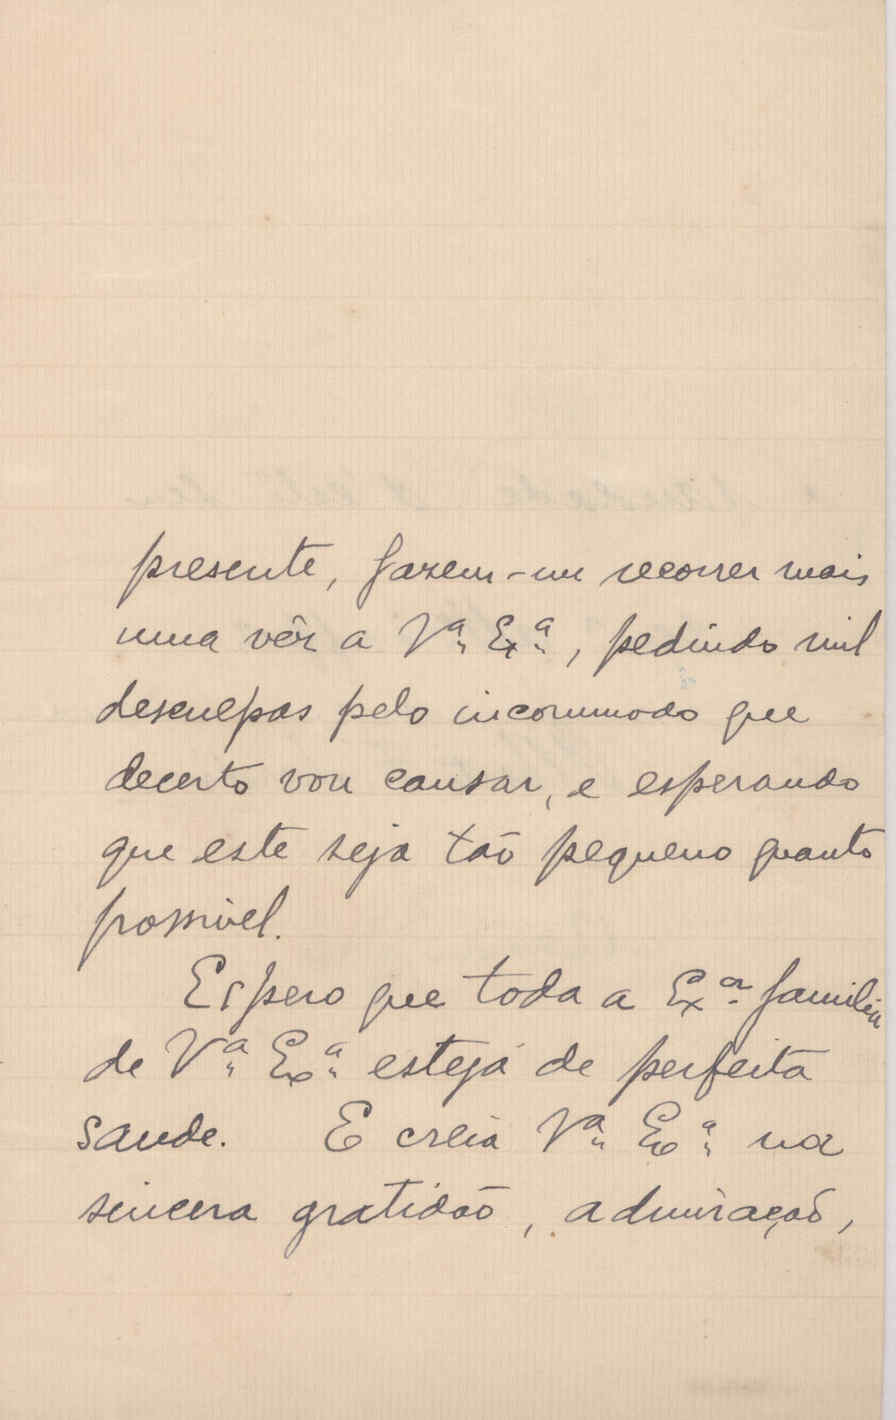 presente, fazem-me recorrer mais
uma vêz a Vª Exª, pedindo mil
desculpas pelo incommodo que
decerto vou causar, e esperando
que este seja tão pequeno quanto
possivel.
Espero que toda a Exª familia
de Vª Exª esteja de perfeita
saude. E creia Vª Exª na
sincera gratidão, admiração,